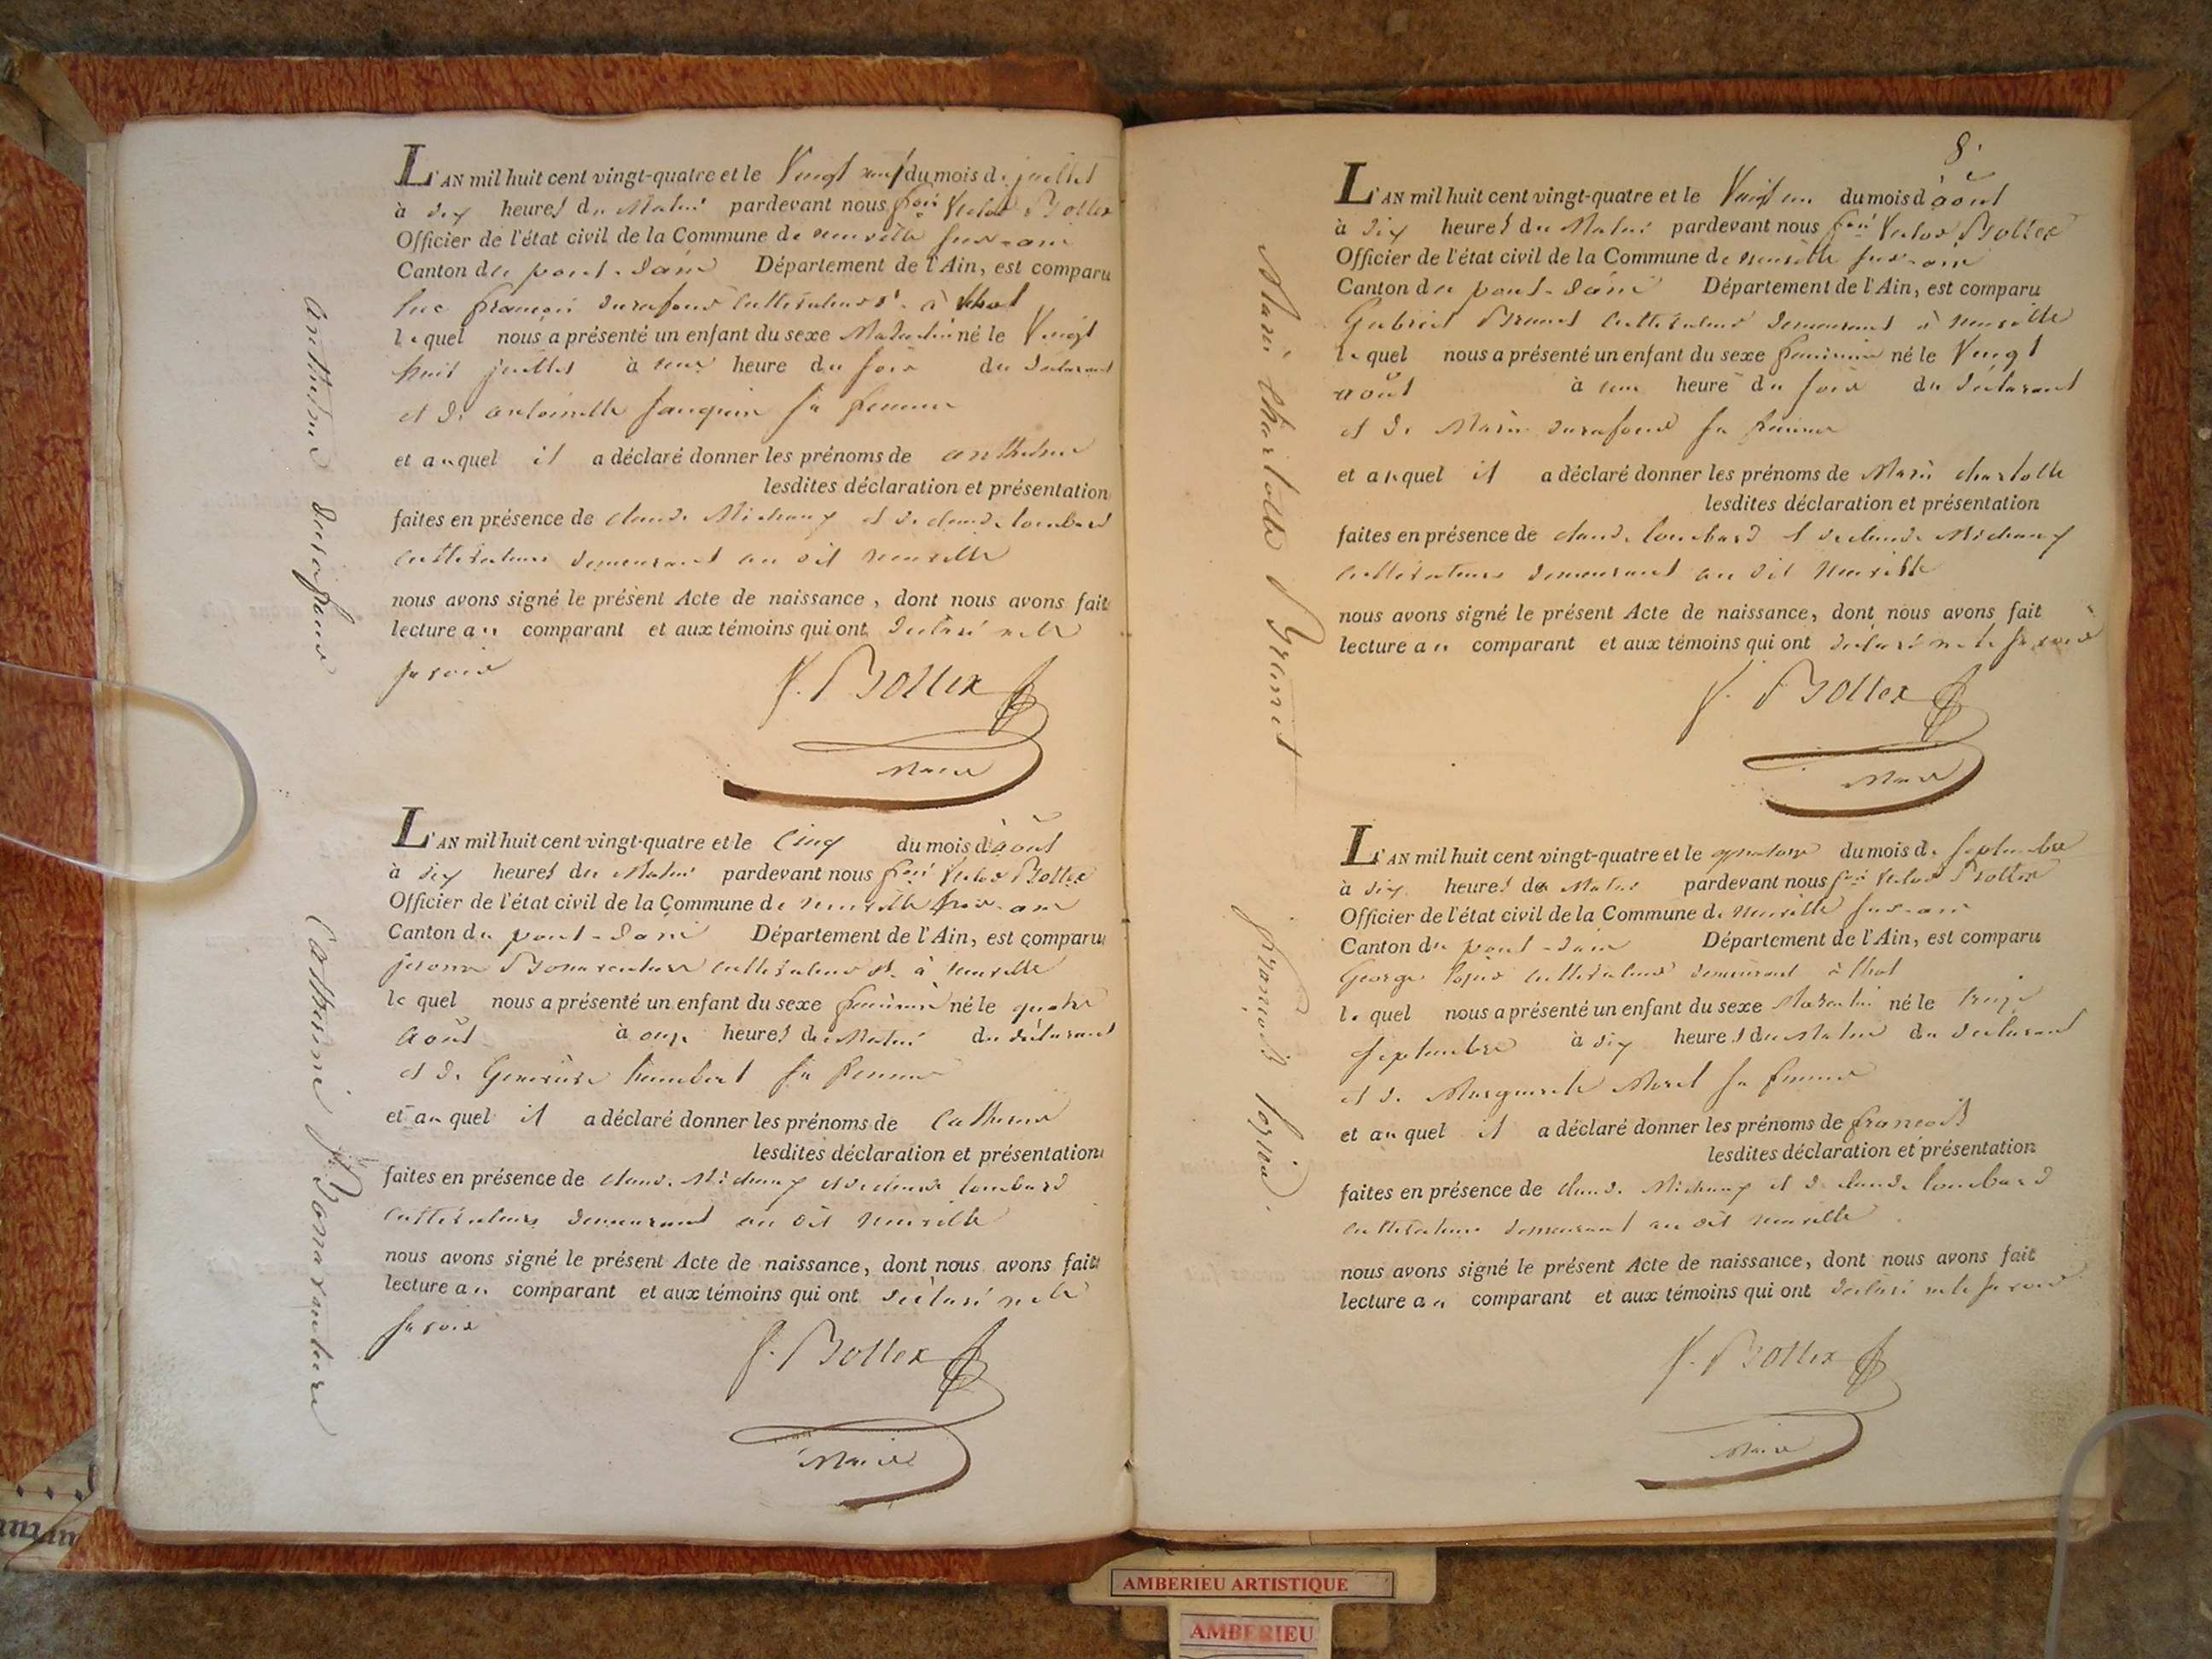 L'AN mil huit cent vingt-quatre et le Vingt neuf du mois de juillet
à dix heures du Matin pardevant nous fçois Victor Bottex
Officier de l'état civil de la Commune de neuville sur-ain
Canton du pont-d'ain Département de l'Ain, est comparu
luc françois durafour cultivateur dt à thol
lequel nous a présenté un enfant du sexe Masculin né le Vingt
huit juillet à une heure du soir du déclarant
et de antoinette janquin sa femme
et auquel il a déclaré donner les prénoms de anthelme
lesdites déclaration et présentation
faites en présence de claude Michaux et de claude lombard
cultivateurs demeurant au dit neuville
nous avons signé le présent Acte de naissance, dont nous avons fait
lecture au comparant et aux témoins qui ont déclaré ne le
savoir
V. Bottex
Maire
anthelme durafour
L'AN mil huit cent vingt-quatre et le Cinq du mois d'août
à dix heures du Matin pardevant nous fçois Victor Bottex
Officier de l'état civil de la Commune de neuville sur-ain
Canton du pont-d'ain Département de l'Ain, est comparu
jérome Bonaventure cultivateur dt à neuville
lequel nous a présenté un enfant du sexe féminin né le quatre
Août à onze heures du Matin du déclarant
et de Geneviève humbert sa femme
et auquel il a déclaré donner les prénoms de Catherine
lesdites déclaration et présentation
faites en présence de claude Michaux et de claude lombard
cultivateurs demeurant au dit neuville
nous avons signé le présent Acte de naissance, dont nous avons fait
lecture au comparant et aux témoins qui ont déclaré ne le
savoir
V. Bottex
Maire
Catherine Bonaventure
8.
L'AN mil huit cent vingt-quatre et le Vingt un du mois d'août
à dix heures du Matin pardevant nous fçois Victor Bottex
Officier de l'état civil de la Commune de neuville sur-ain
Canton du pont-d'ain Département de l'Ain, est comparu
Gabriel Brunet cultivateur demeurant à neuville
lequel nous a présenté un enfant du sexe féminin né le Vingt
août à une heure du soir du déclarant
et de Marie durafour sa femme
et auquel il a déclaré donner les prénoms de Marie charlotte
lesdites déclaration et présentation
faites en présence de claude lombard et de claude Michaux
cultivateurs demeurant au dit Neuville
nous avons signé le présent Acte de naissance, dont nous avons fait
lecture au comparant et aux témoins qui ont déclaré ne le savoir
V. Bottex
Maire
Marie charlotte Brunet
L'AN mil huit cent vingt-quatre et le quatorze du mois de septembre
à dix heures du Matin pardevant nous fçois Victor Bottex
Officier de l'état civil de la Commune de Neuville sur-ain
Canton du pont-d'ain Département de l'Ain, est comparu
George cultivateur demeurant à thol
lequel nous a présenté un enfant du sexe Masculin né le treize
septembre à dix heures du Matin du déclarant
et de Marguerite Morel sa femme
et auquel il a déclaré donner les prénoms de francois
lesdites déclaration et présentation
faites en présence de claude Michaux et de claude lombard
cultivateurs demeurant au dit neuville
nous avons signé le présent Acte de naissance, dont nous avons fait
lecture au comparant et aux témoins qui ont déclaré ne le savoir
V. Bottex
Maire
françois
AMBERIEU ARTISTIQUE
AMBERIEU